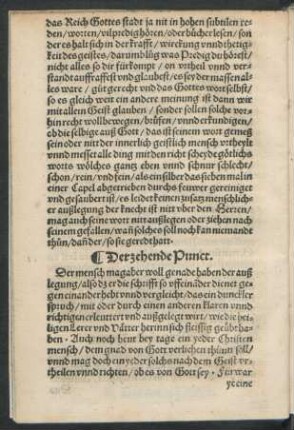 das Reich Gottes stadt ja nit in hohen subtilen re-
den/ worten/ vil predig hören/ oder bücher lesen/ son
der es halt sich in der krafft/ wirckung vnnd hetig-
keit des geistes/ darumb lüg was Predig du hörest/
nicht alles so dir fürkompt/ on vrtheil vnnd ver-
standt auffraffest vnd glaubest/ es sey der massen al-
les ware/ gůt gerecht vnd das Gottes wort selbst/
so es gleich weit ein andere meinung ist dann wir
mit allein Geist glauben/ sonder sollen solche vor-
hin recht wollbewegen/ brüfen/ vnnd erkundigen/
ob die selbige auß Gott/ das ist seinem wort gemeß
sein oder nit der innerlich geistlich mensch vrtheylt
vnnd messet alle ding mit den richtscheyd götlichs
worts wölches gantz eben vnnd schnur schlecht/
schon/ rein/ vnd fein/ als ein silber das sieben malin
einer Capel abgetrieben durchs feuwer gereiniget
vnd gesaubert ist/ es leidet keinen zusatz menschlich-
er außlegung der knecht ist nitt vber den Herren/
mag auch seine wort nitt auslegen oder ziehen nach
seinem gefallen/ wañ solches soll noch kan niemande
thůn/ dañ der/ so sie geredt hatt.
¶ Der zehende Punct.
Der mensch mag aber woll genade haben der auß
legung/ also dz er die schrifft so vff ein ander dienet ge-
gen einander hebt vnnd vergleicht/ das ein dunckler
spruch/ mit oder durch einen anderen klaren vnnd
richtigen erleutert vnd außgelegt wirt/ wie die heil-
ligen Lerer vnd Vätter herinn sich fleissig geübt ha-
ben. Auch noch heut bey tage ein yeder Christen
mensch/ dem gnad von Gott verliehen thůnn soll/
vnnd mag doch ein yeder solchs nach dem Geist vr-
theilen vnnd richten/ ob es von Gott sey. Fer war
ye eine